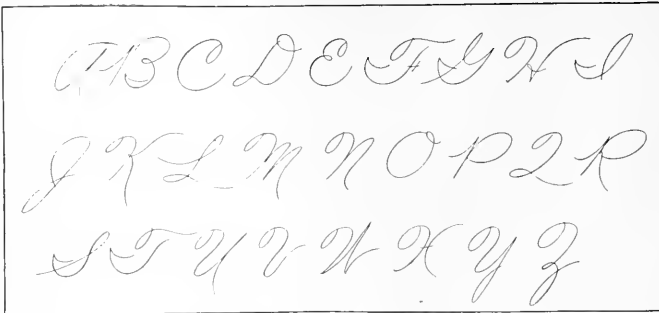 A B C D E F G H I
J K L M N O P Q R
S T U V W X Y Z